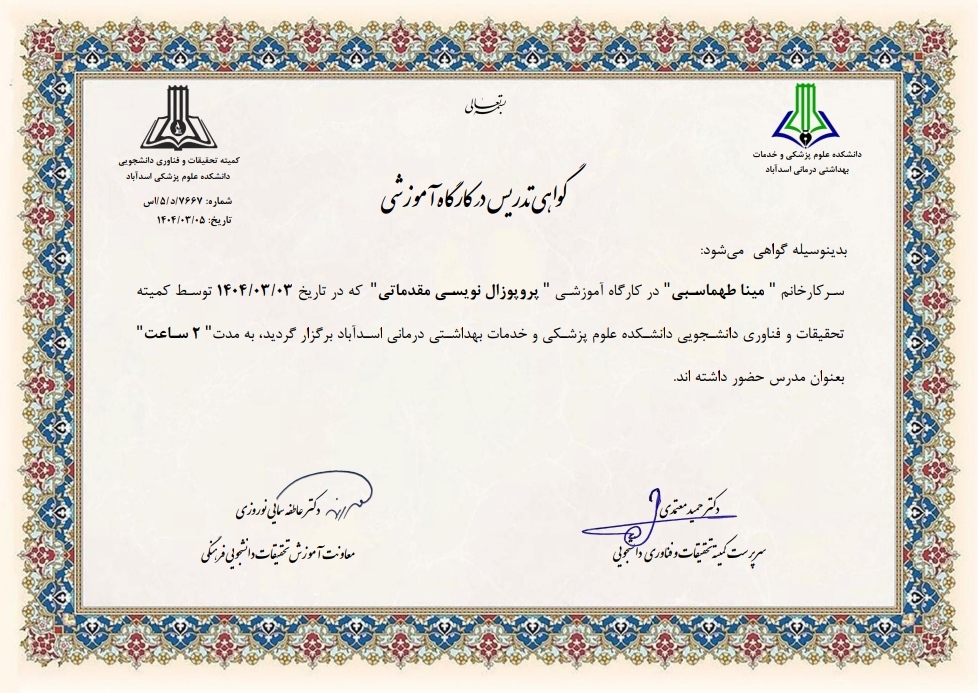 بسمه تعالی
دانشکده علوم پزشکی و خدمات
بهداشتی درمانی اسدآباد
کمیته تحقیقات و فناوری دانشجویی
دانشکده علوم پزشکی اسدآباد
شماره: ۷۶۶۷/د/۵/اس
تاریخ: ۱۴۰۴/۰۳/۰۵
گواهی تدریس در کارگاه آموزشی
بدینوسیله گواهی می‌شود:
سرکارخانم " مینا طهماسبی" در کارگاه آموزشی " پروپوزال نویسی مقدماتی" که در تاریخ ۱۴۰۴/۰۳/۰۳ توسط کمیته
تحقیقات و فناوری دانشجویی دانشکده علوم پزشکی و خدمات بهداشتی درمانی اسدآباد برگزار گردید، به مدت" ۲ ساعت"
بعنوان مدرس حضور داشته اند.
دکتر حمید معتمدی
سرپرست کمیته تحقیقات و فناوری دانشجویی
دکتر عاطفه سمایی نوروزی
معاونت آموزش تحقیقات دانشجویی فرهنگی